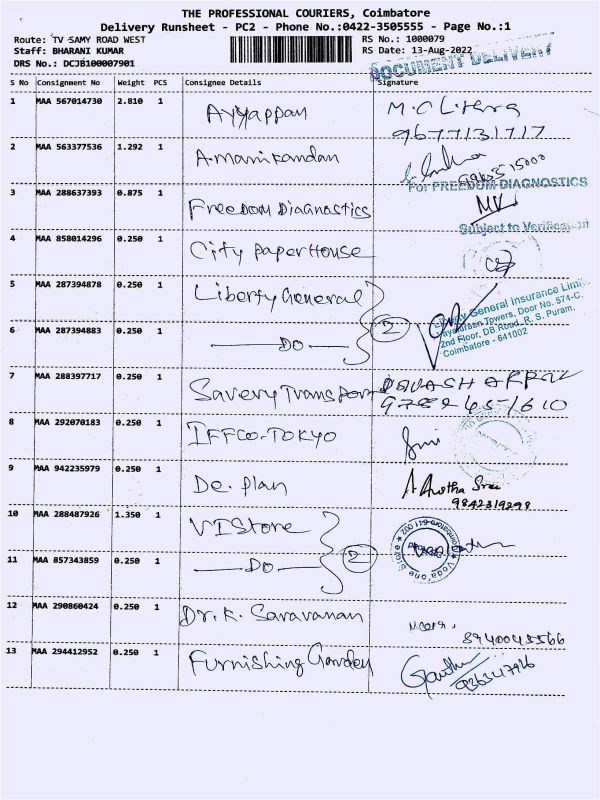 THE PROFESSIONAL COURIERS, Coimbatore
Delivery Runsheet - PC2 - Phone No.:0422-3505555 - Page No.:1
Route: TV SAMY ROAD WEST
Staff: BHARANI KUMAR
DRS No.: DCJB100007901
RS No.: 1000079
RS Date: 13-Aug-2022
DOCUMENT DELIVERY
S No Consignment No Weight PCS Consignee Details Signature
1 MAA 567014730 2.810 1 Ayyappan
9677131717
2 MAA 563377536 1.292 1 A.manikandan
For FREEDOM DIAGNOSTICS
3 MAA 288637393 0.875 1 Freedom Diagnostics
Subject to Verification
4 MAA 858014296 0.250 1 City Paper House
5 MAA 287394878 0.250 1 Liberty General
6 MAA 287394883 0.250 1 —DO— 2
Liberty General Insurance Limi
Towers, Door No. 574-C,
2nd Floor, DB Road, R. S. Puram,
Coimbatore - 641002
7 MAA 288397717 0.250 1 Savery Transport
8 MAA 292070183 0.250 1 IFFCO-TOKYO
9 MAA 942235979 0.250 1 De. plan
9842319298
10 MAA 288487926 1.350 1 VI Store
11 MAA 857343859 0.250 1 —DO— 2
12 MAA 290860424 0.250 1 Dr. K. Saravanan
8940045566
13 MAA 294412952 0.250 1 Furnishing Garden